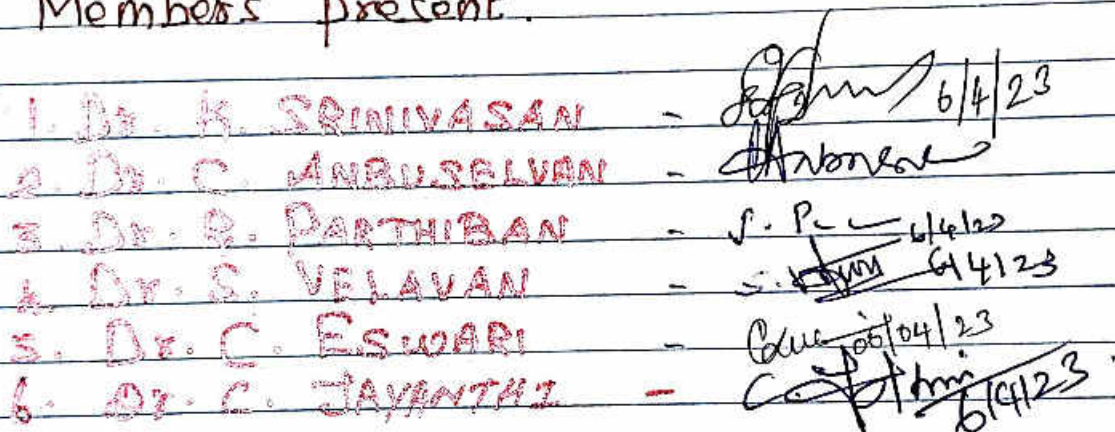 Members present.
1. Dr. K. SRINIVASAN - 6/4/23
2. Dr. C. ANBUSELVAN -
3. Dr. R. PARTHIBAN - 6/4/23
4. Dr. S. VELAVAN - 6/4/23
5. Dr. C. ESWARI - 06/04/23
6. Dr. C. JAYANTHI - 6/4/23